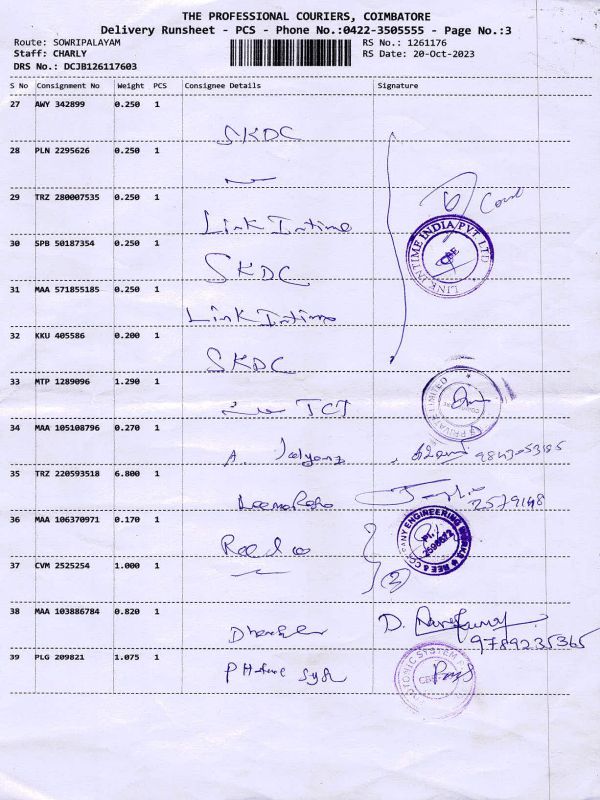 THE PROFESSIONAL COURIERS, COIMBATORE
Delivery Runsheet - PCS - Phone No.:0422-3505555 - Page No.:3
Route: SOWRIPALAYAM RS No.: 1261176
Staff: CHARLY RS Date: 20-Oct-2023
DRS No.: DCJB126117603
S No Consignment No Weight PCS Consignee Details Signature
27 AWY 342899 0.250 1
SKDC
28 PLN 2295626 0.250 1
29 TRZ 280007535 0.250 1
Link Intime
LINK INTIME INDIA PVT LTD
CBE
30 SPB 50187354 0.250 1
SKDC
31 MAA 571855185 0.250 1
Link Intime
32 KKU 405586 0.200 1
SKDC
33 MTP 1289096 1.290 1
TCI
PRIVATE LIMITED
34 MAA 105108796 0.270 1
A.
35 TRZ 220593518 6.800 1
36 MAA 106370971 0.170 1
REE & COMPANY ENGINEERING WORKS
37 CVM 2525254 1.000 1
2
38 MAA 103886784 0.820 1
D.
9789235365
39 PLG 209821 1.075 1
SYSTEM
CBE